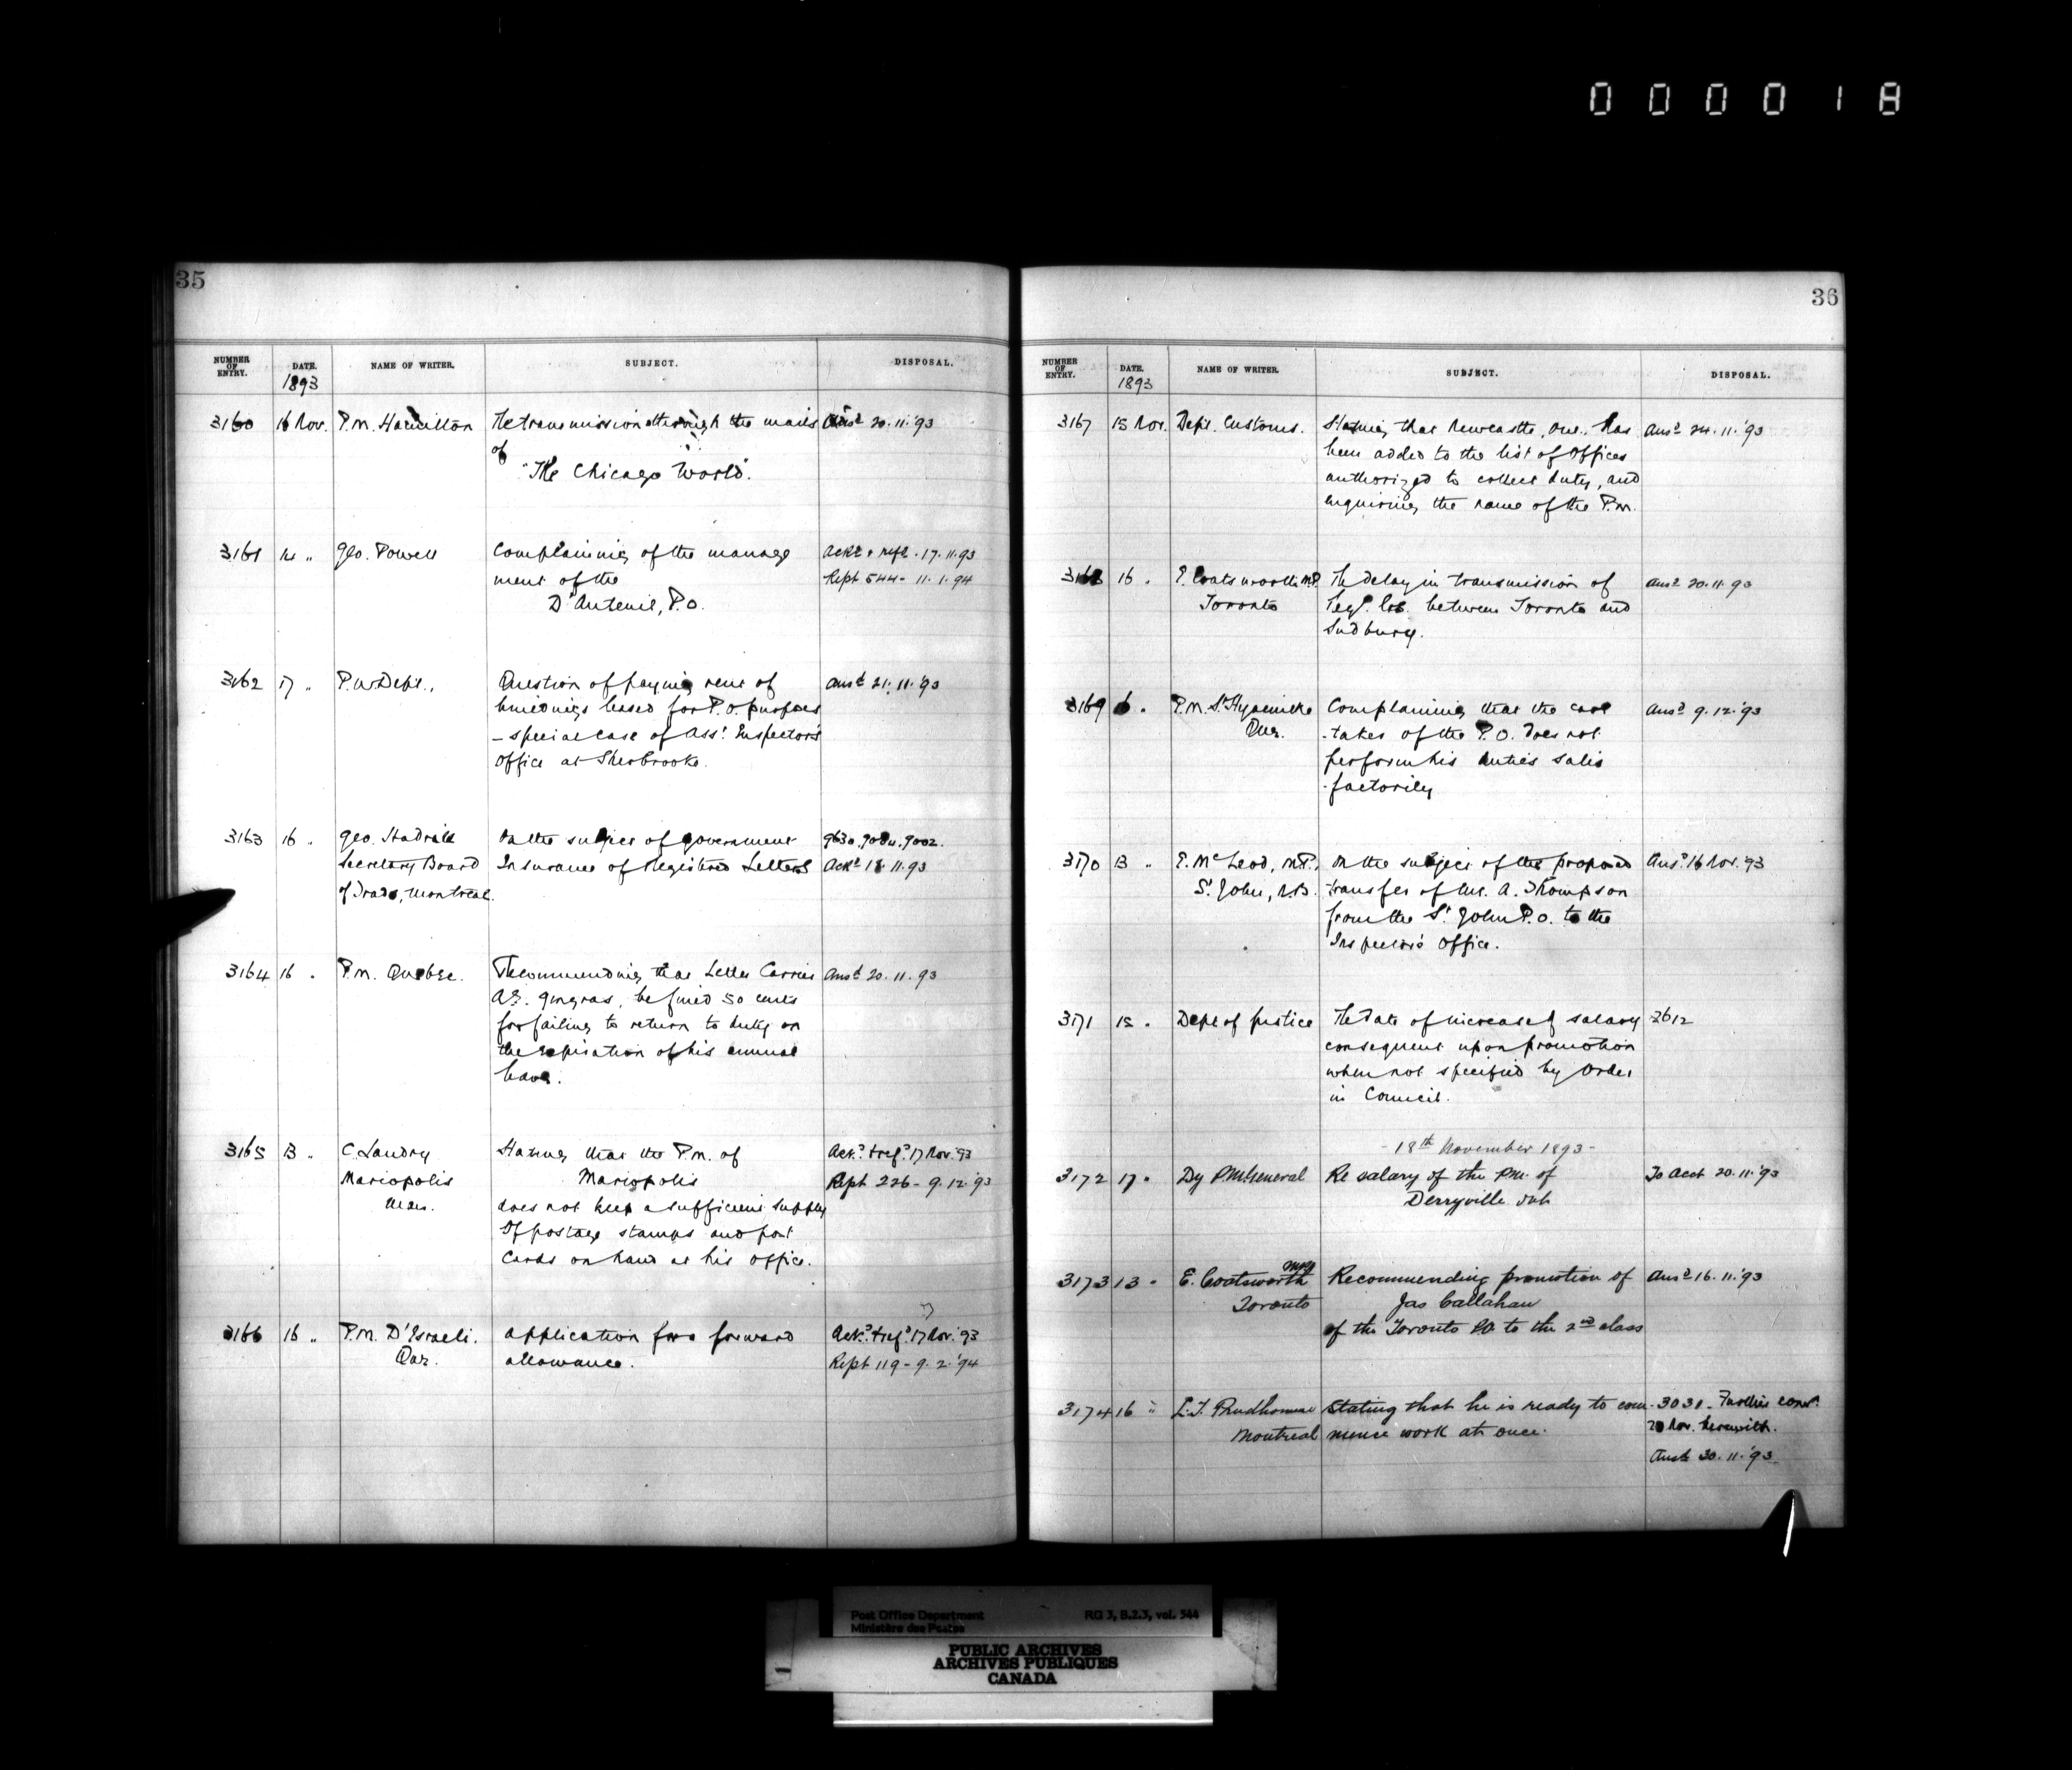 000018
35
NUMBER OF ENTRY. DATE. NAME OF WRITER. SUBJECT. DISPOSAL.
1893
3160 16 Nov. P.M. Hamilton The transmission through the mails Ansd 20.11.'93
of
"The Chicago World".
3161 14 " Geo. Powell Complaining of the manage Ackd & refd. 17.11.93
ment of the Rept 544- 11.1.94
D'Auteuil, P.O.
3162 17 " P.W. Dept., Question of paying rent of Ansd 21.11.'93
buildings leased for P.O. purposes
- special case of Asst. Inspector's
Office at Sherbrooke.
3163 16 " Geo. Hadrill On the subject of Government 9630.9084.9002.
Secretary Board Insurance of Registered Letters Ackd 18.11.93
of Trade, Montreal.
3164 16 " P.M. Quebec. Recommending that Letter Carrier Ansd 20.11.93
A.E. Gingras, be fined 50 cents
for failing to return to duty on
the expiration of his annual
leave.
3165 13 " C. Landry Stating that the P.M. of Ackd. & refd. 17 Nov. '93
Mariopolis Mariopolis Rept 226- 9.12.'93
Man. does not keep a sufficient supply
of postage stamps and post
cards on hand at his office.
3166 16 " P.M. D'Israeli. Application for a forward Ackd. & refd. 17 Nov. '93
Que. allowance. Rept 119- 9.2.'94
36
NUMBER OF ENTRY. DATE. NAME OF WRITER. SUBJECT. DISPOSAL.
1893
3167 15 Nov. Dept. Customs. Stating that Newcastle, Ont. has Ansd 24.11.'93
been added to the list of Offices
authorized to collect duty, and
enquiring the name of the P.M.
3168 16 " E. Coatsworth M.P. The delay in transmission of Ansd 20.11.93
Toronto Regd. between Toronto and
Sudbury.
3169 6 " P.M. St. Hyacinthe Complaining that the care Ansd 9.12.'93
Que. -taker of the P.O. does not
perform his duties satis
-factorily
3170 13 " E. McLeod, M.P., On the subject of the proposed Ansd. 16 Nov. '93
St. John, N.B. transfer of Mr. A. Thompson
from the St. John P.O. to the
Inspector's Office.
3171 15 " Dept of Justice The date of increase of salary 2612
consequent upon promotion
when not specified by Order
in Council.
- 18th November 1893 -
3172 17 " Dy P.M. General Re salary of the PM. of To Acct 20.11.'93
Derryville Ont
3173 13 " E. Coatsworth MP Recommending promotion of Ansd 16.11.'93
Toronto Jas Callahan
of the Toronto PO to the 2nd class
3174 16 " L.J. Prudhomme Stating that he is ready to com- 3031- Further corr.
Montreal mence work at once. Nov. herewith.
Ansd 30.11.'93
Post Office Department RG 3, B.2.3, vol. 544
Ministère des Postes
PUBLIC ARCHIVES
ARCHIVES PUBLIQUES
CANADA